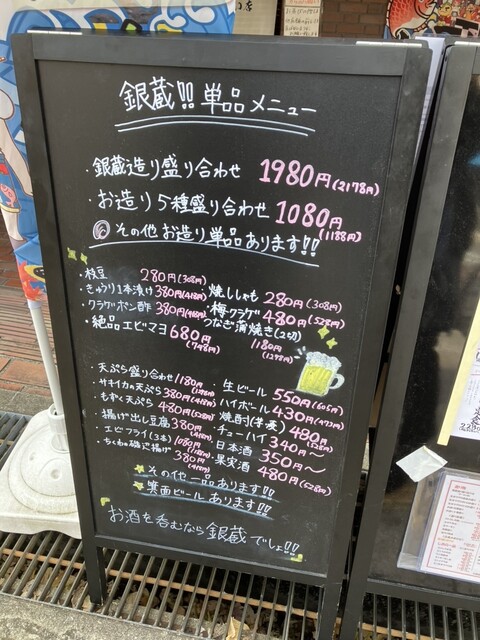 銀蔵!! 単品メニュー
・銀蔵造り盛り合わせ 1980円(2178円)
・お造り5種盛り合わせ 1080円(1188円)
◎その他お造り単品あります!!
・枝豆 280円(308円)
・きゅうり1本漬け 380円(418円)
・クラゲポン酢 380円(418円)
・絶品エビマヨ 680円(748円)
・焼ししゃも 280円(308円)
・梅クラゲ 480円(528円)
・うなぎ蒲焼き(2切) 1180円(1298円)
・天ぷら盛り合わせ 1180円(1298円)
・サキイカの天ぷら 380円(418円)
・もずく天ぷら 480円(528円)
・揚げ出し豆腐 380円(418円)
・エビフライ(3本) 1080円(1188円)
・ちくわの磯辺揚げ 380円(418円)
・生ビール 550円(605円)
・ハイボール 430円(473円)
・焼酎(芋・麦) 480円(528円)
・チューハイ 340円〜
・日本酒 350円〜
・果実酒 480円(528円)
その他一品あります!!
箕面ビールあります!!
お酒を呑むなら銀蔵でしょ!!